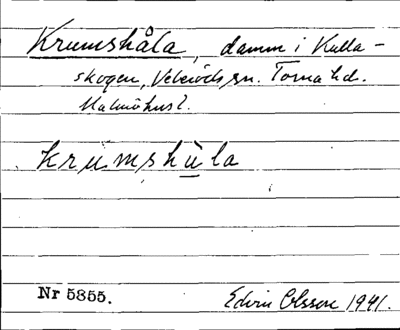 Krumshåla, damm i Kulla-
skogen, Veberöds sn. Torna hd.
Malmöhus l.
krùmshùla
Nr 5855. Edvin Olsson 1941.